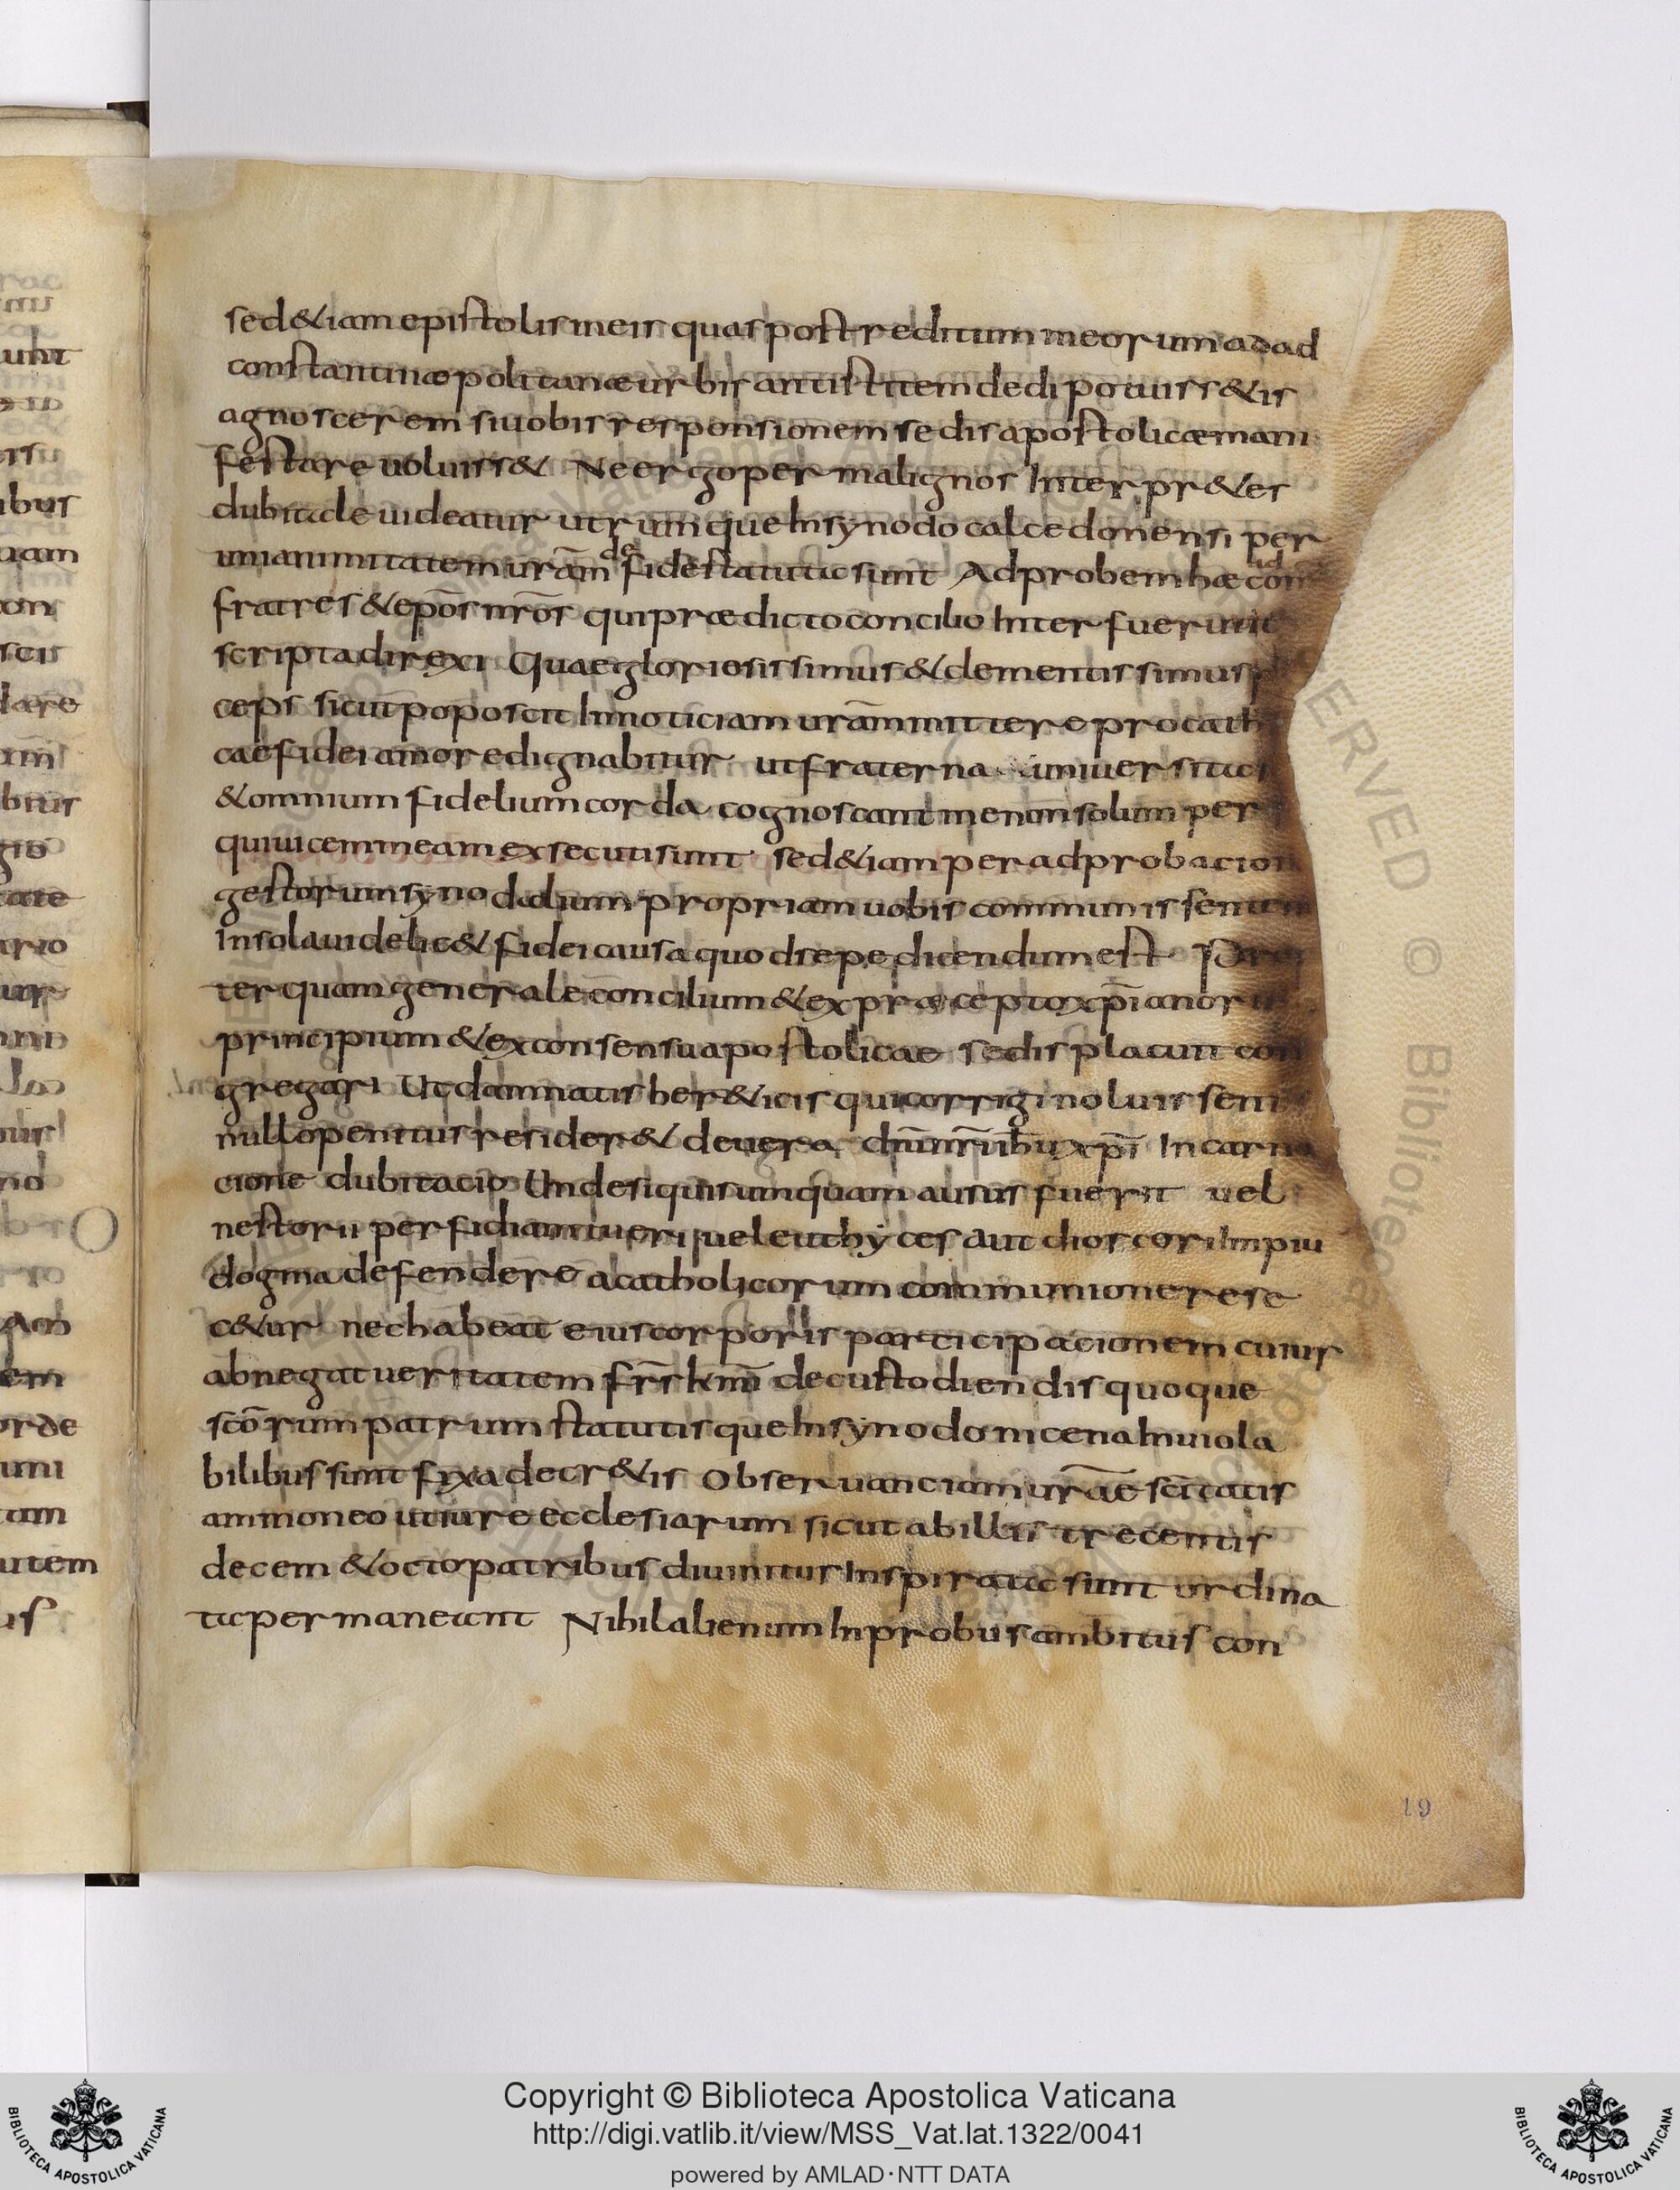 sed &iam epistolis meis quas post reditum meorum ad ad
constantinopolitanæ urbis antistitem dedi potuiss&is
agnoscerem si uobis responsionem sedis apostolicæ mani
festare uoluiss& Ne ergo per malignos Interpr&es
dubitabile uideatur utrum que In synodo calcedonensi per
unianimitatem uram de fide statuta sunt Adprobem hæc ad om
fratres & epos nros qui prædicto concilio Interfuerunt
scripta direxi Quae gloriosissimus & clementissimus p
ceps sicut poposcit In noticiam uram mittere pro cath
cae fidei amore dignabitur ut fraterna uniuersitas
& omnium fidelium corda cognoscant me non solum per
qui uicem meam exsecuti sunt sed &iam per adprobacion
gestorum synodalium propriam uobis communisse senten
In sola uidelic& fidei causa quod sepe dicendum est Prop
ter quam generale concilium & ex præcepto xpianoru
principium & ex consensu apostolicae sedis placuit con
gregari Ut damnatis her&icis qui corrigi noluissent
nullo penitus resider& de uera dni nri ihu xpi Incarna
cione dubitacio Unde si quis umquam ausus fuerit uel
nestorii perfidiam tueri uel euthyces aut dioscori Impiu
dogma defendere a catholicorum communione rese
c&ur nec habeat eius corporis participacionem cuius
abnegat ueritatem frs kmi de custodiendis quoque
scorum patrum statutis que In synodo nicena Inuiola
bilibus sunt fyxa decr&is Obseruanciam urae scitatis
ammoneo ut iure ecclesiarum sicut ab illis trecentis
decem & octo patribus diuinitus Inspirata sunt ordina
ta permaneant Nihil alienum Inprobus ambitus con
19
Copyright © Biblioteca Apostolica Vaticana
http://digi.vatlib.it/view/MSS_Vat.lat.1322/0041
powered by AMLAD·NTT DATA
BIBLIOTECA APOSTOLICA VATICANA
BIBLIOTECA APOSTOLICA VATICANA